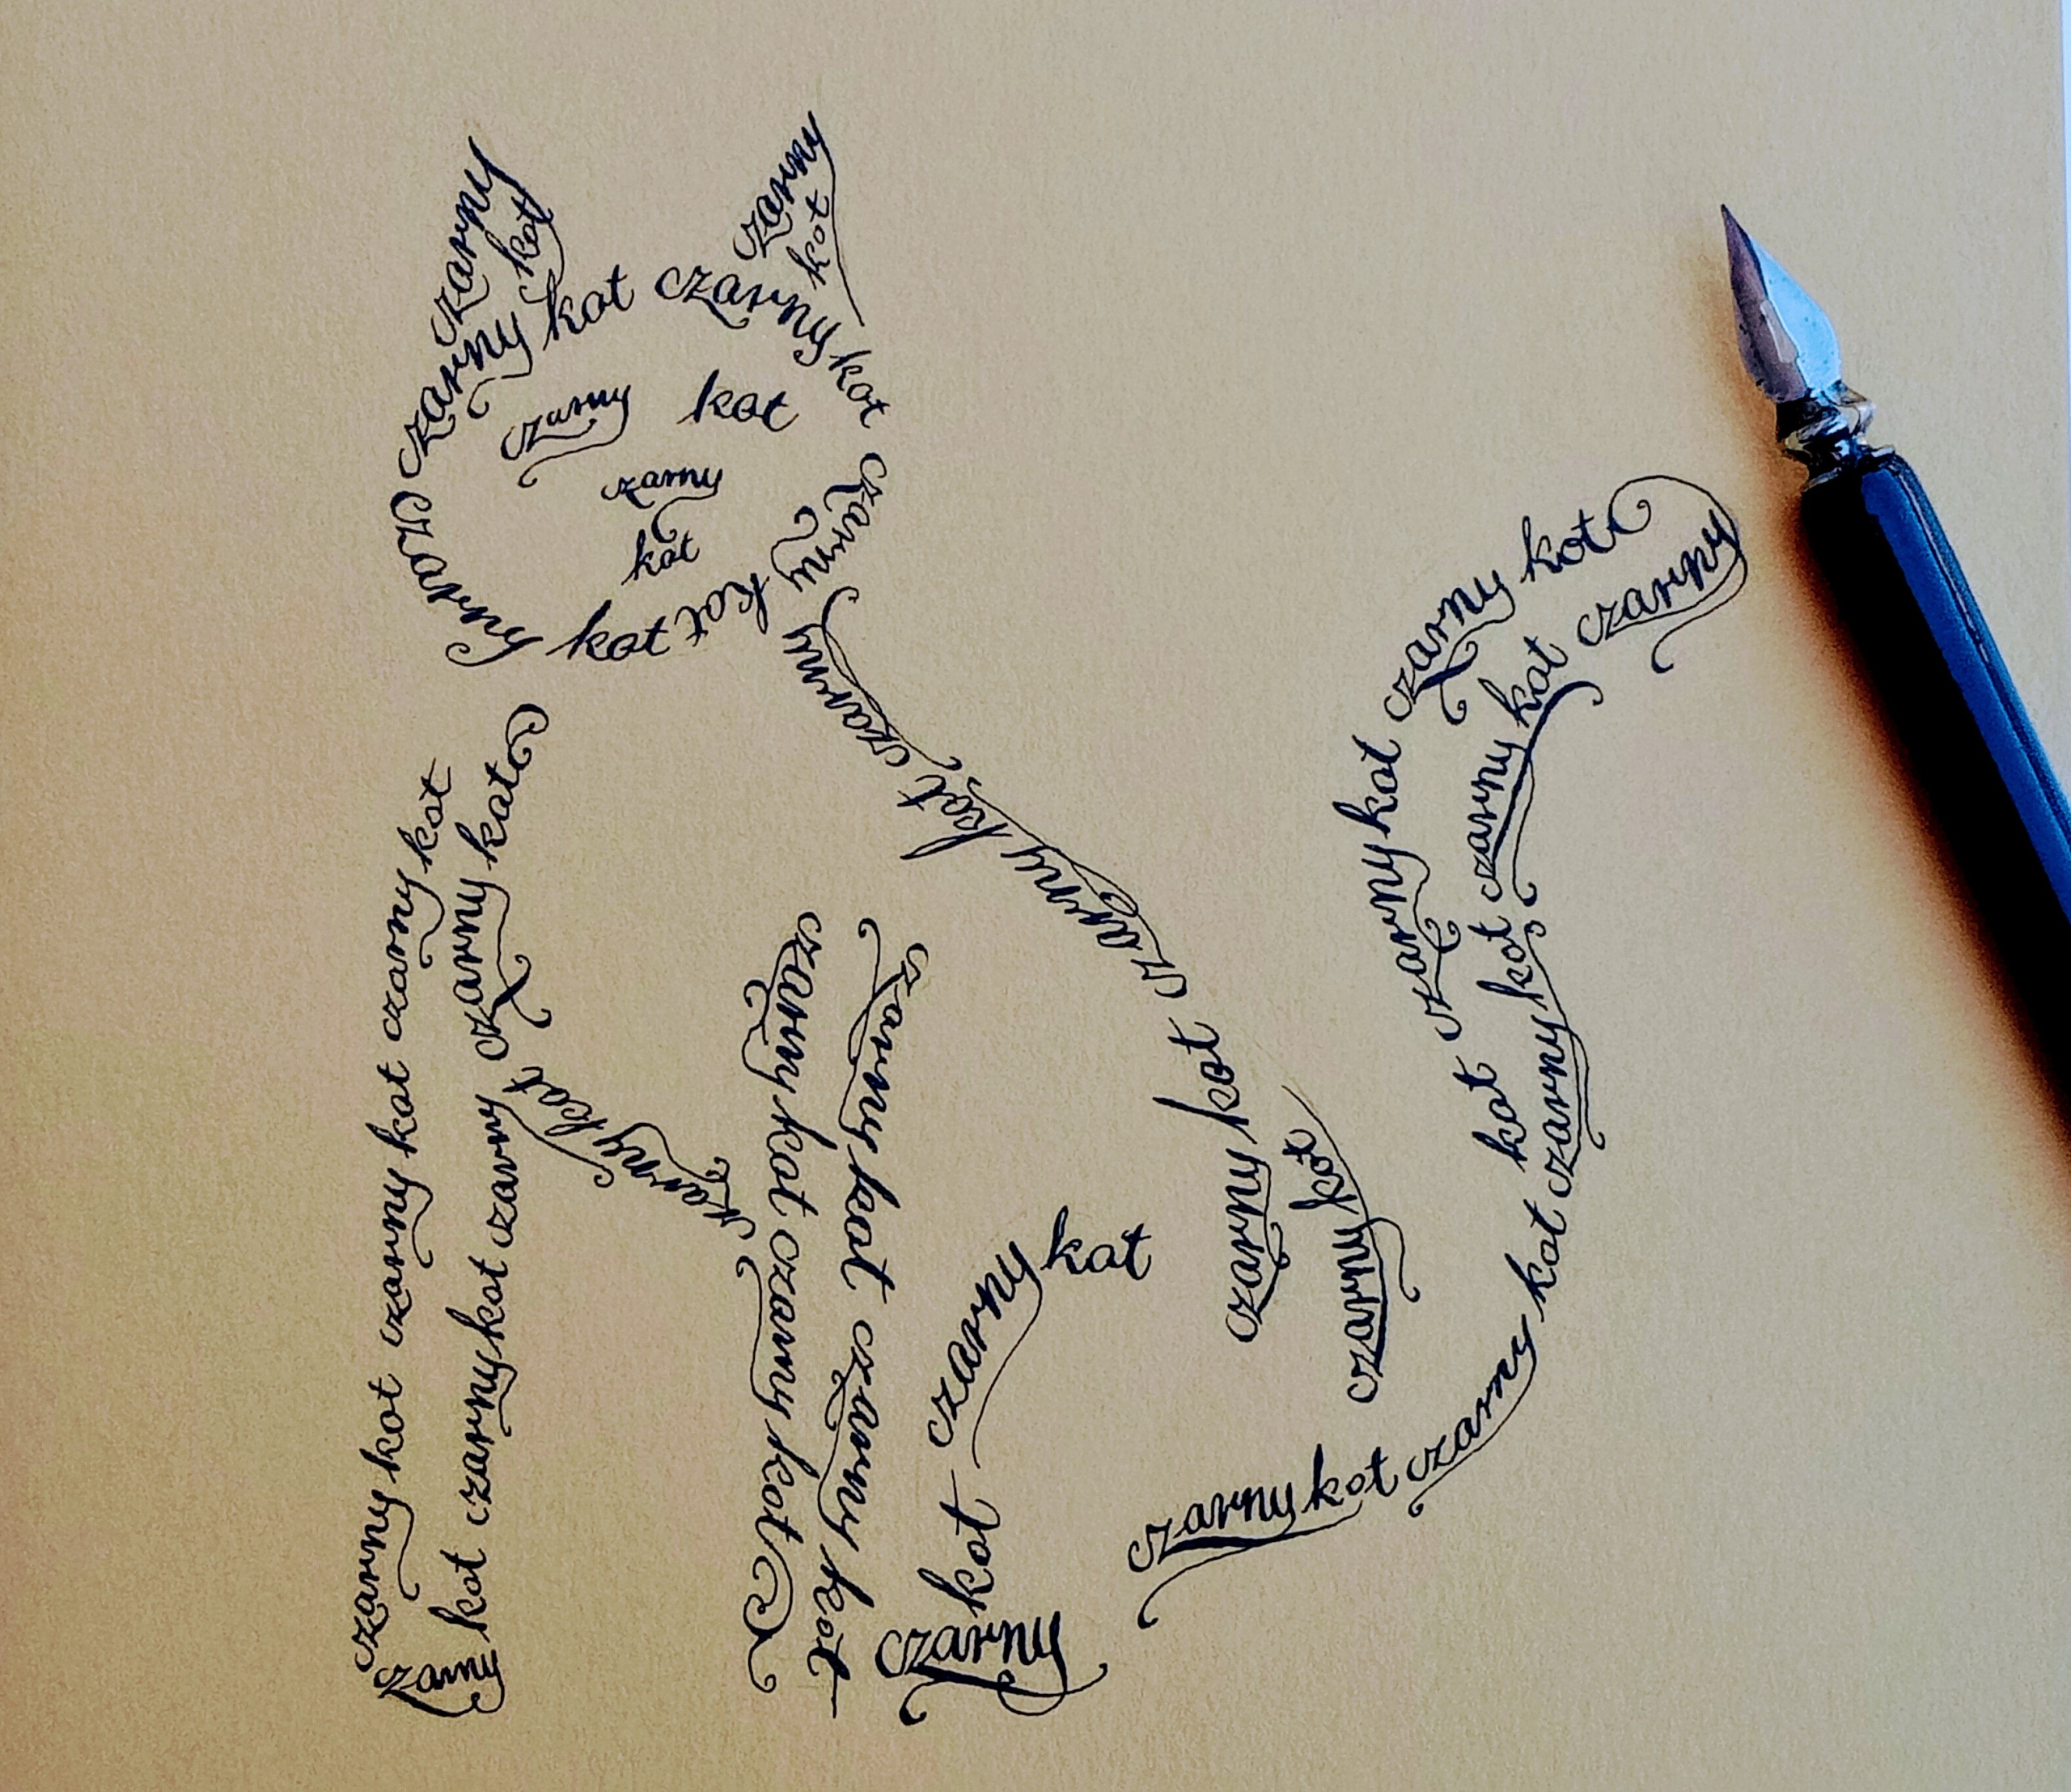 czarny
kot
czarny
kot
czarny kot
czarny kot
czarny kot
czarny
kot
czarny kot
czarny kot
czarny kot
czarny kot
czarny kot
czarny kot
czarny kot czarny kot czarny kot
czarny kot czarny kot czarny kot czarny kot
czarny kot
czarny kot czarny kot
czarny kot czarny kot
czarny kot czarny kot
czarny kot
czarny kot
czarny kot
czarny kot
czarny kot
czarny kot
czarny kot czarny kot
czarny